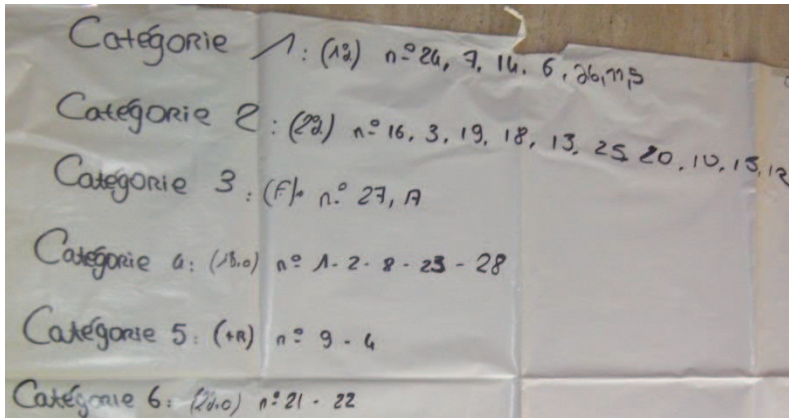 Catégorie 1: (1d) nº 24, 7, 14, 6, 26, 11, 5
Catégorie 2: (2d) nº 16, 3, 19, 18, 13, 25, 20, 10, 15, 12
Catégorie 3: (F) nº 27, A
Catégorie 4: nº 1 - 2 - 8 - 23 - 28
Catégorie 5: (+R) nº 9 - 4
Catégorie 6: (2d.o) nº 21 - 22